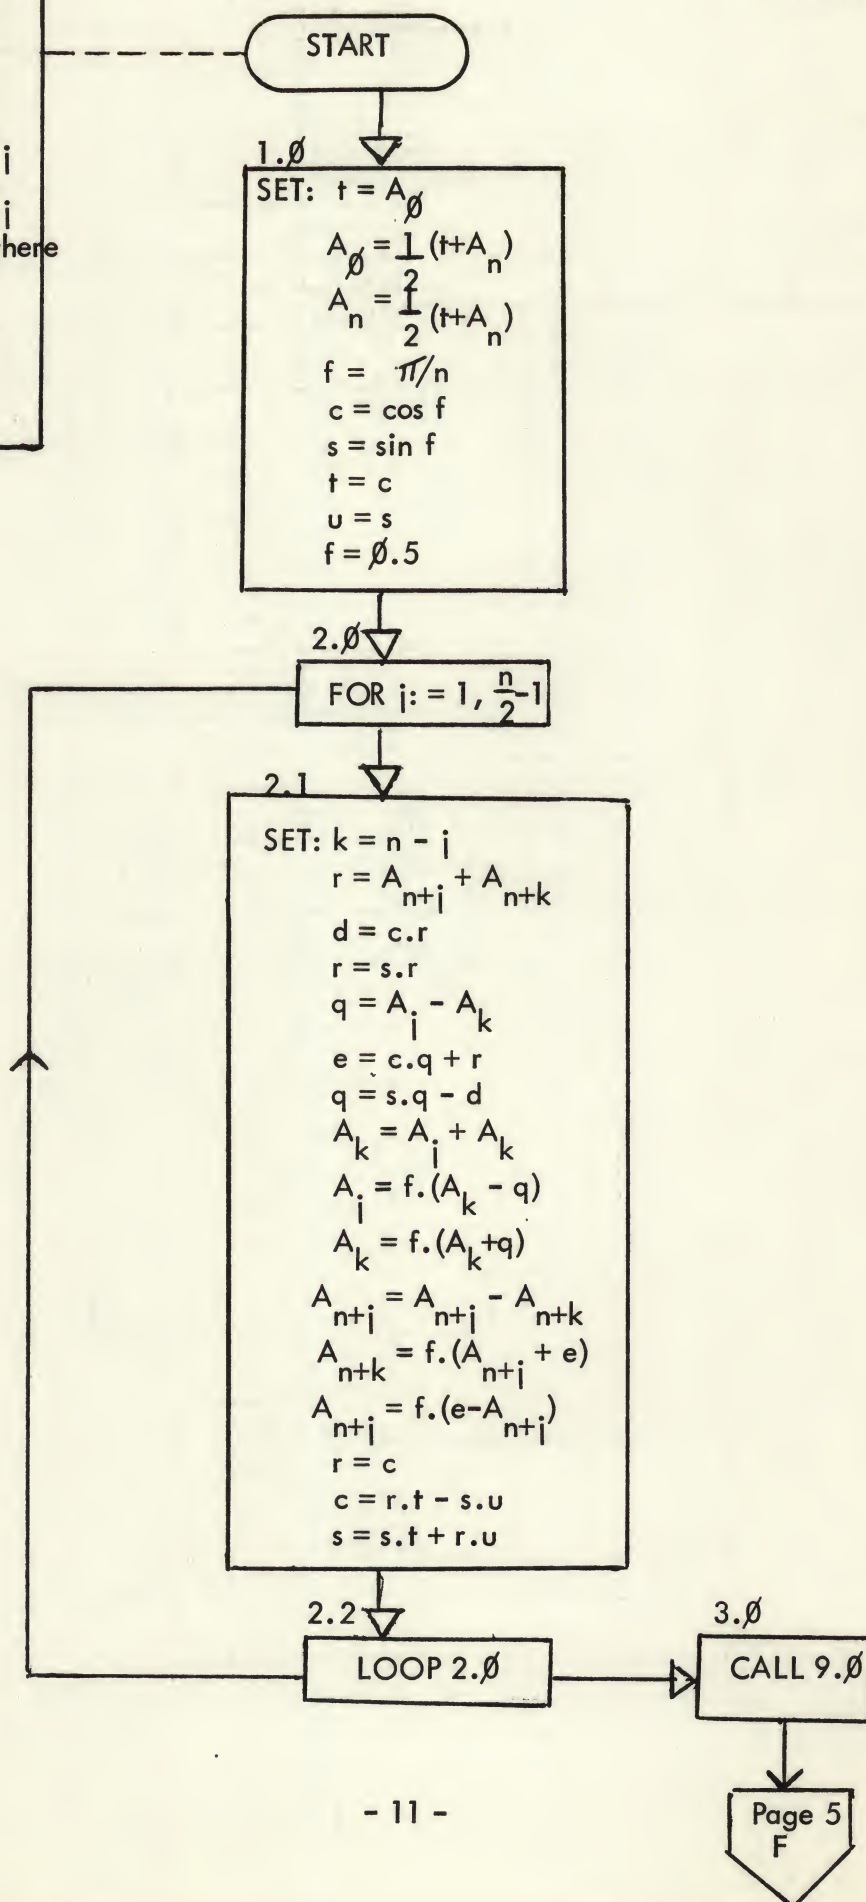 START
j
j
here
1.Ø
SET: t = A_Ø
A_Ø = 1/2 (t+A_n)
A_n = 1/2 (t+A_n)
f = π/n
c = cos f
s = sin f
t = c
u = s
f = Ø.5
2.Ø
FOR j: = 1, n/2-1
2.1
SET: k = n - j
r = A_n+j + A_n+k
d = c.r
r = s.r
q = A_j - A_k
e = c.q + r
q = s.q - d
A_k = A_j + A_k
A_j = f.(A_k - q)
A_k = f.(A_k+q)
A_n+j = A_n+j - A_n+k
A_n+k = f.(A_n+j + e)
A_n+j = f.(e-A_n+j)
r = c
c = r.t - s.u
s = s.t + r.u
2.2
LOOP 2.Ø
3.Ø
CALL 9.Ø
Page 5
F
- 11 -